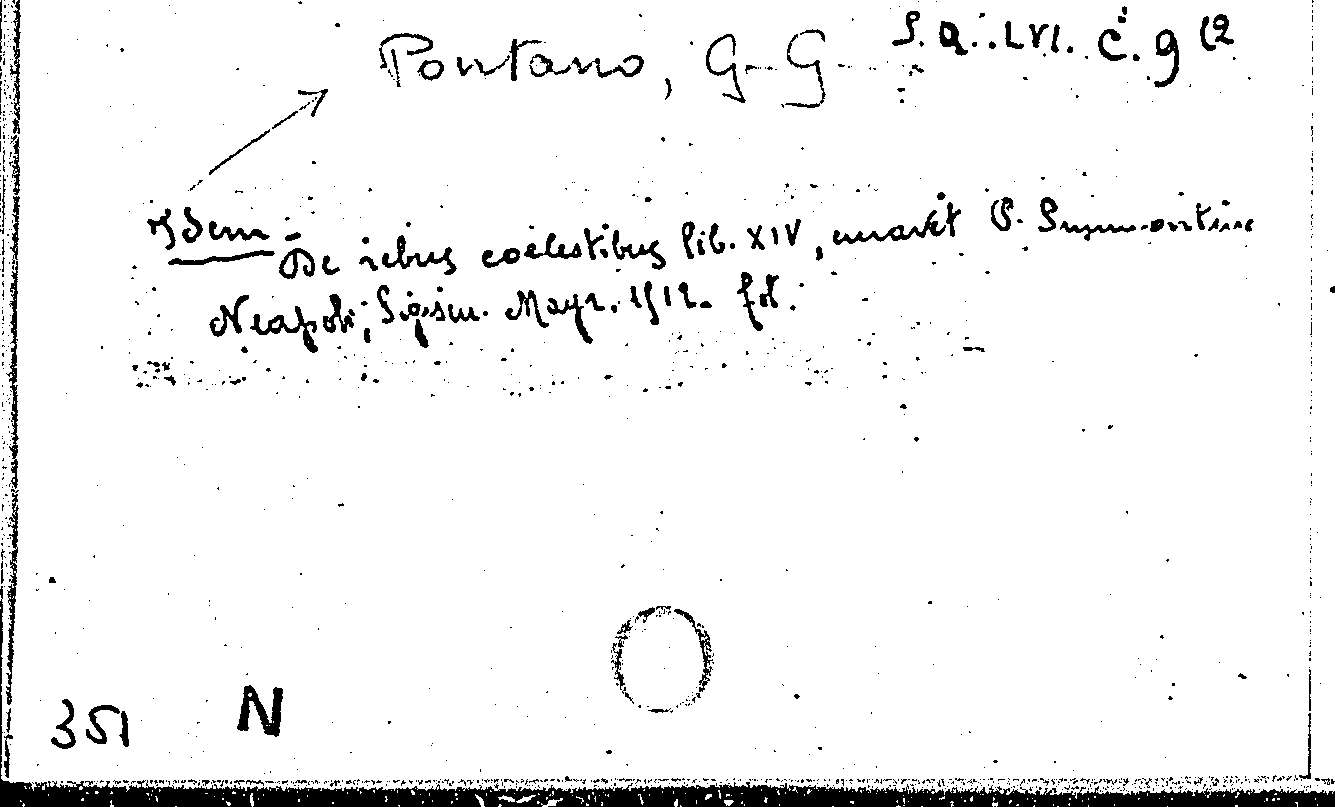 Pontano, G-G S.Q..LVI. C. 9 (2
Idem - De rebus coelestibus lib. XIV, enarvit P. Summontius
Neapoli, Sigism. Mayr. 1512. fol.
351 N